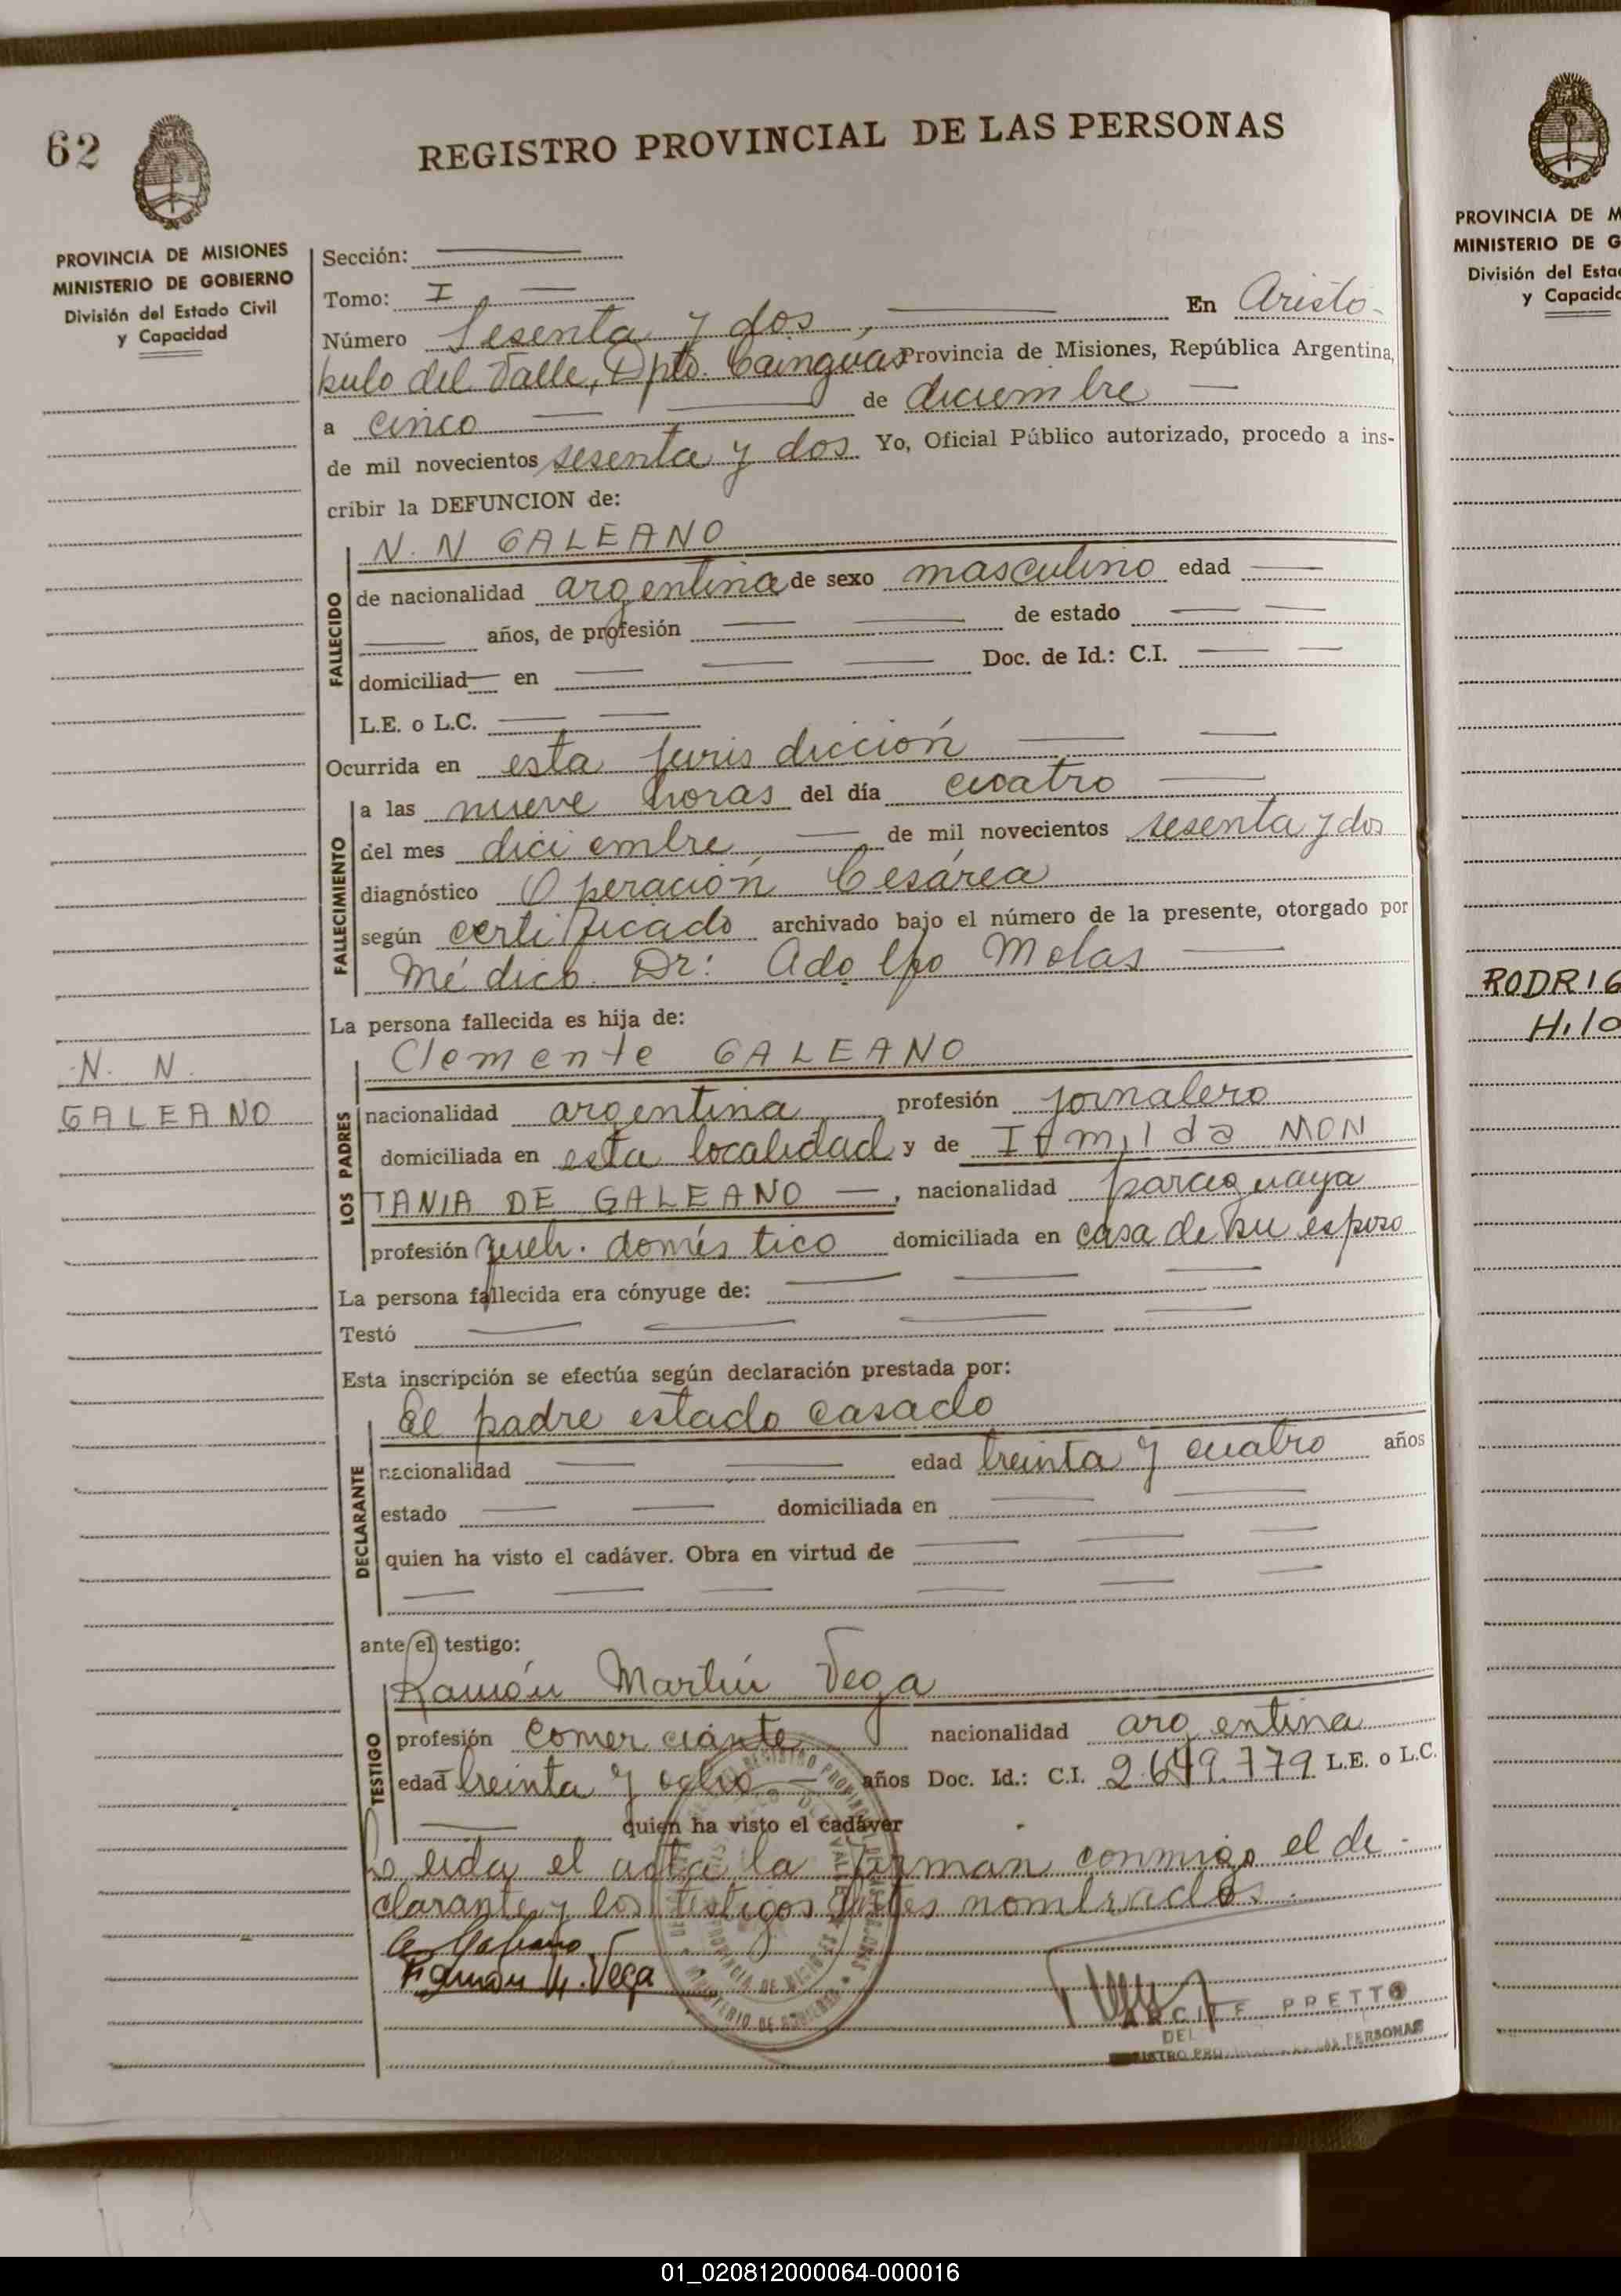 62
REGISTRO PROVINCIAL DE LAS PERSONAS
PROVINCIA DE MISIONES
MINISTERIO DE GOBIERNO
División del Estado Civil
y Capacidad
Sección:
Tomo: I
Número Sesenta y dos, En Aristó-
bulo del Valle, Dpto. Cainguas Provincia de Misiones, República Argentina,
a cinco de diciembre
de mil novecientos sesenta y dos Yo, Oficial Público autorizado, procedo a ins-
cribir la DEFUNCION de:
N. N GALEANO
FALLECIDO
de nacionalidad argentina de sexo masculino edad
años, de profesión de estado
domiciliad en Doc. de Id.: C.I.
L.E. o L.C.
Ocurrida en esta jurisdicción
FALLECIMIENTO
a las nueve horas del día cuatro
del mes diciembre de mil novecientos sesenta y dos
diagnóstico Operación Cesárea
según certificado archivado bajo el número de la presente, otorgado por
Médico Dr: Adolfo Molas
La persona fallecida es hija de:
N. N.
GALEANO
Clemente GALEANO
LOS PADRES
nacionalidad argentina profesión jornalero
domiciliada en esta localidad y de MON
TANIA DE GALEANO, nacionalidad paraguaya
profesión queh. doméstico domiciliada en casa de su esposo
La persona fallecida era cónyuge de:
Testó
Esta inscripción se efectúa según declaración prestada por:
El padre estado casado
DECLARANTE
nacionalidad edad treinta y cuatro años
estado domiciliada en
quien ha visto el cadáver. Obra en virtud de
ante el testigo:
Ramón Martín Vega
TESTIGO
profesión Comerciante nacionalidad argentina
edad treinta y ocho años Doc. Id.: C.I. 2.649.779 L.E. o L.C.
quien ha visto el cadáver
Leida el acta la firman conmigo el de-
clarante y los testigos antes nombrados.
Ramón M. Vega
PRETTO
DEL
REGISTRO PROVINCIAL DE LAS PERSONAS
PROVINCIA DE M
MINISTERIO DE G
División del Esta
y Capacida
RODRIG
Hilo
01_020812000064-000016